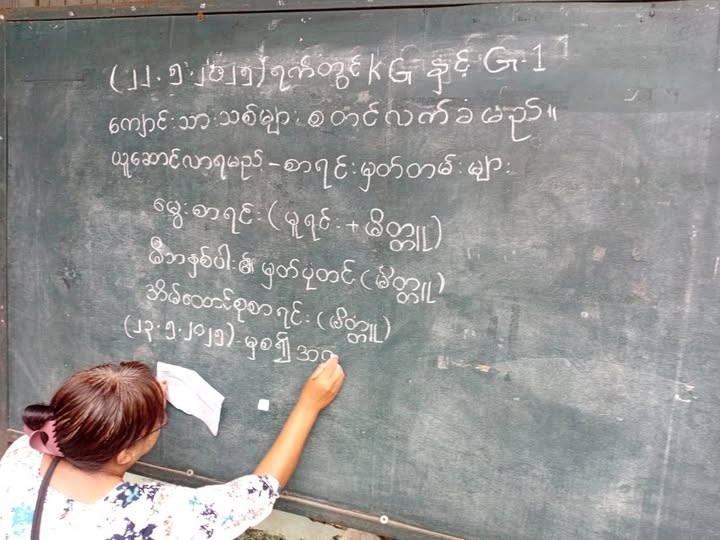 (၂၂.၅.၂၀၂၅)ရက်တွင် KG နှင့် G-1
ကျောင်းသားသစ်များ စတင်လက်ခံမည်။
ယူဆောင်လာရမည့်-စာရင်းမှတ်တမ်းများ
မွေးစာရင်း(မူရင်း+မိတ္တူ)
မိဘနှစ်ပါး၏ မှတ်ပုံတင်(မိတ္တူ)
အိမ်ထောင်စုစာရင်း(မိတ္တူ)
(၂၃.၅.၂၀၂၅)-မှစ၍